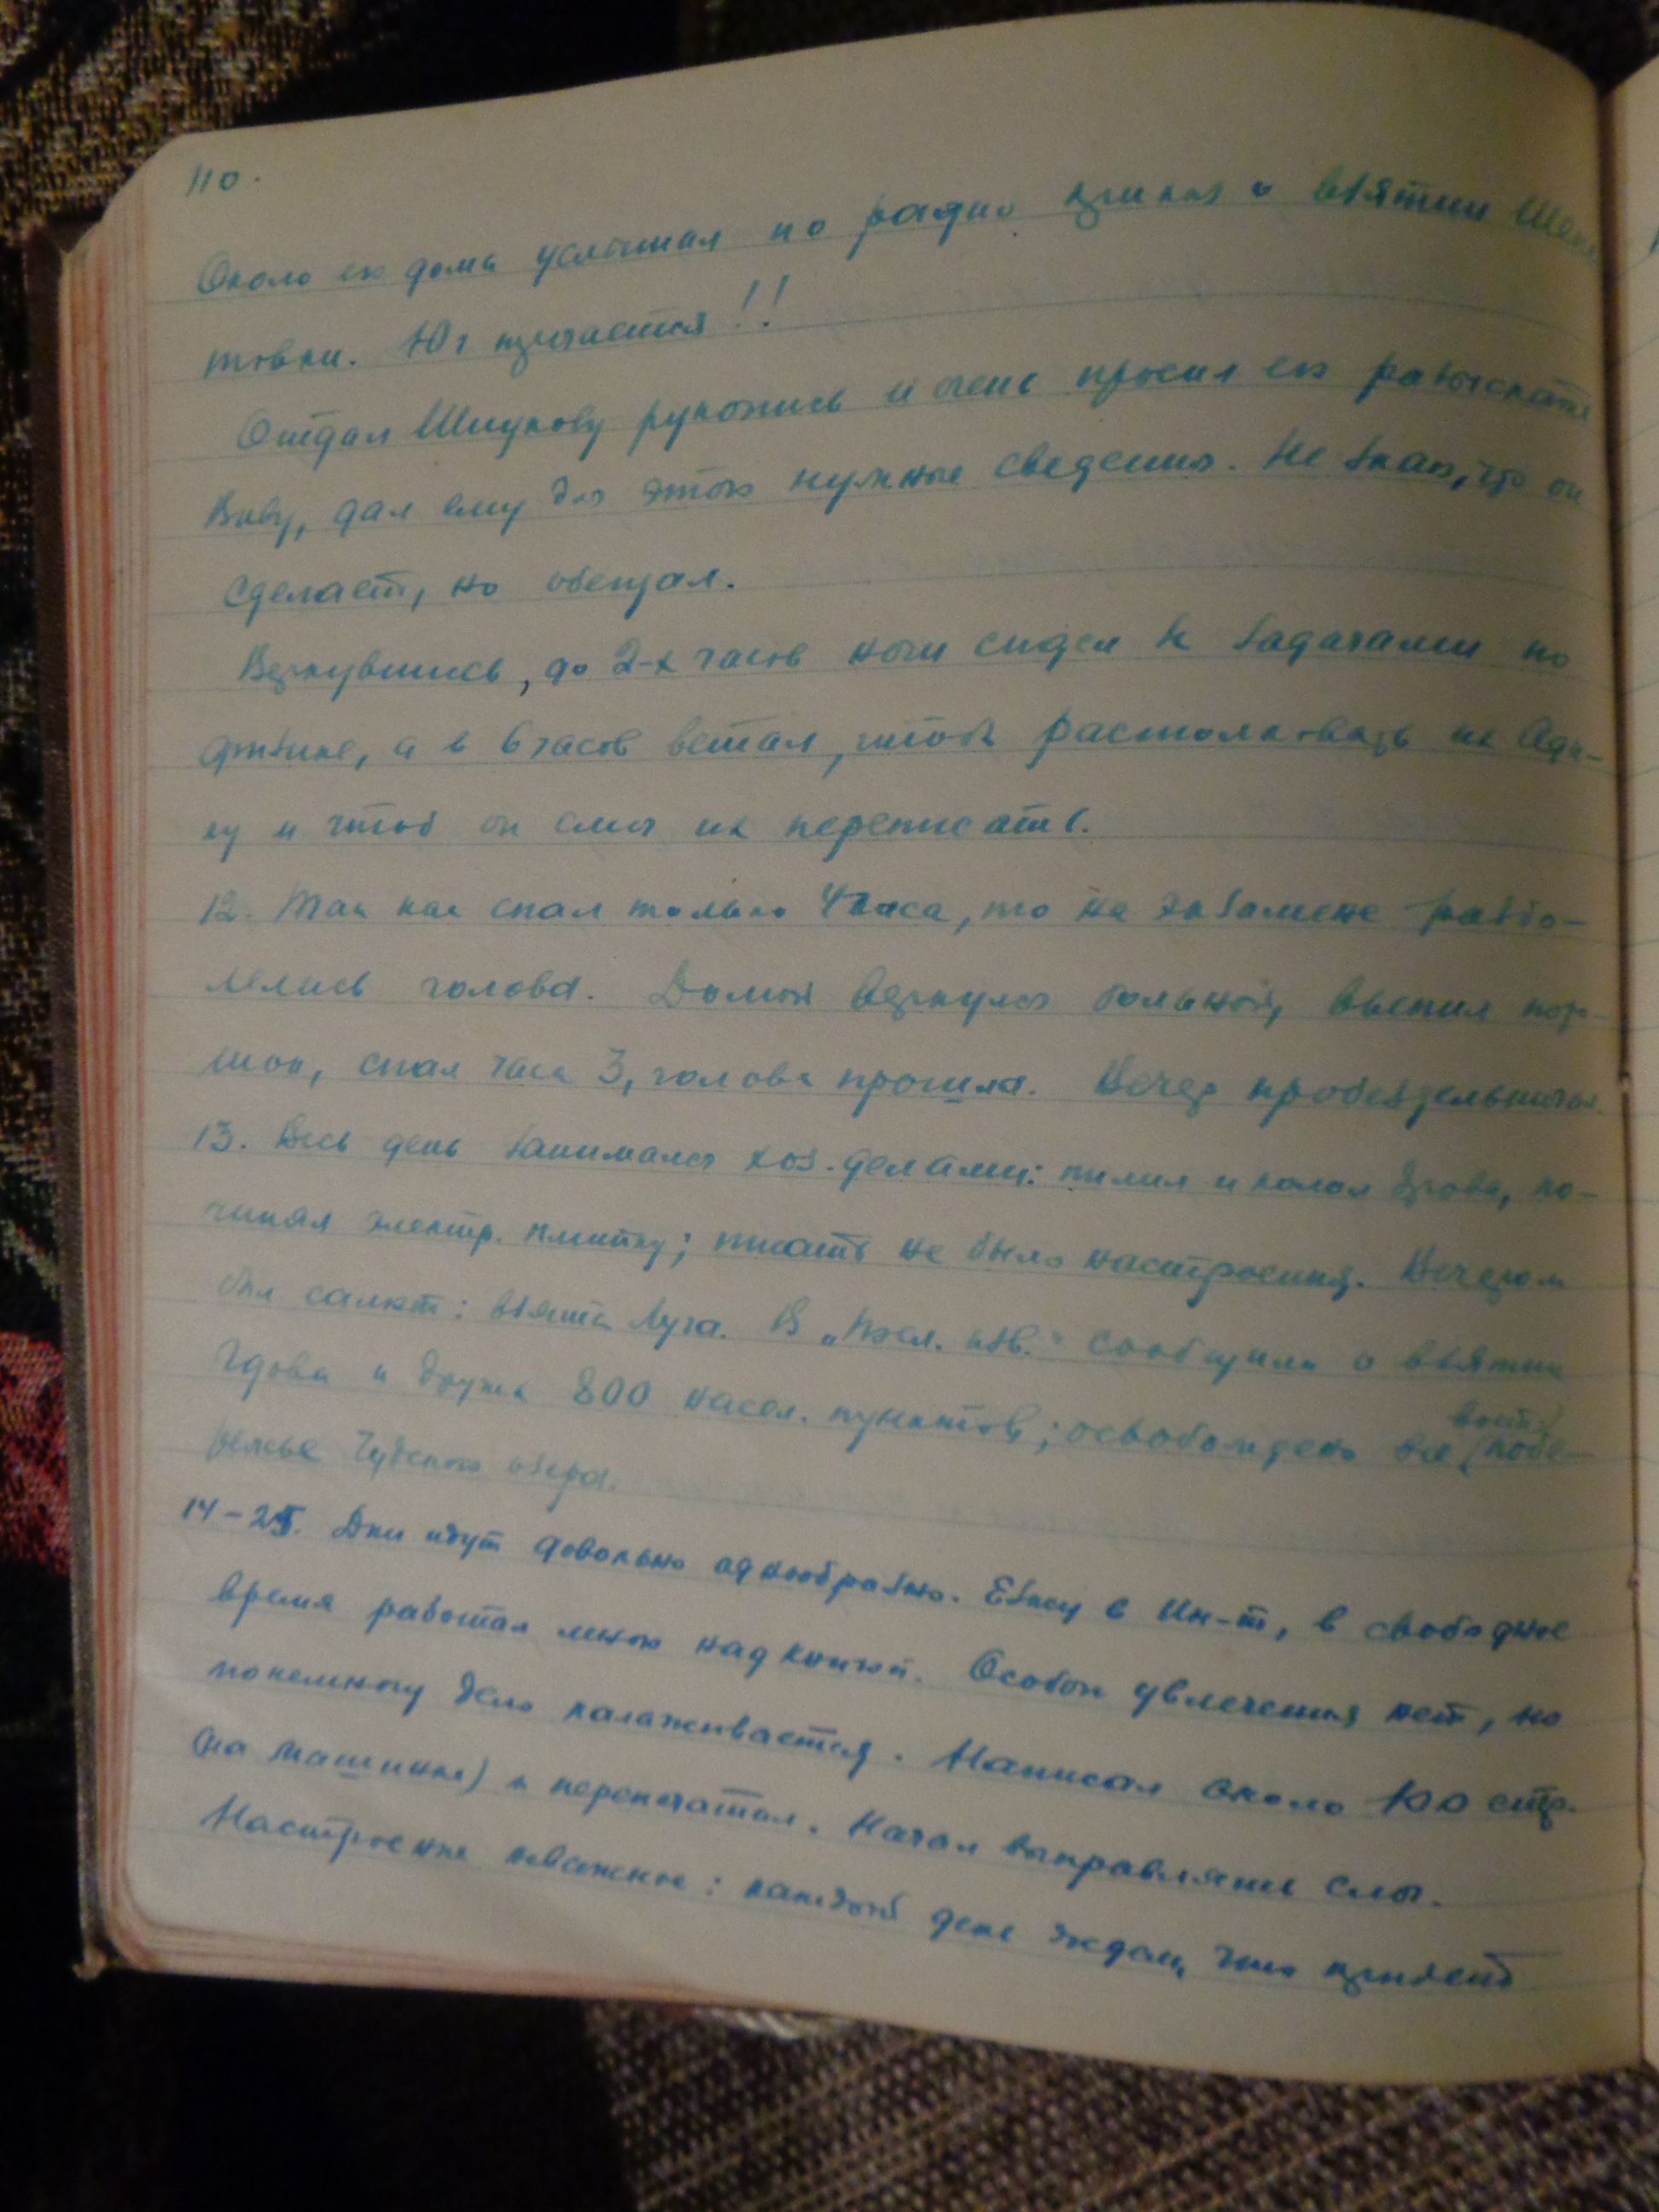 110.
Около его дома услышал по радио приказ о взятии Шепе
товки. Юг кончается!!
Отдал Шмукову рукопись и очень просил его разыскать
Вову, дал ему для этого нужные сведения. Не знаю, что он
сделает, но обещал.
Вернувшись, до 2-х часов ночи сидел за задачами по
физике, а в 6 часов встал, чтоб растолковать их Ади-
ку и чтоб он смог их переписать.
12. Так как спал только 4 часа, то на экзамене разбо-
лелась голова. Домой вернулся больной, выпил поро-
шок, спал часа 3, голова прошла. Вечер пробездельничал.
13. Весь день занимался хоз. делами: пилил и колол дрова, по-
чинял электр. плитку; писать не было настроения. Вечером
был салют: взята Луга. В „Посл. изв." сообщили о взятии
Гдова и других 800 насел. пунктов; освобождено все (вост.) побе-
режье Чудского озера.
14-25. Дни идут довольно однообразно. Езжу в Ин-т, в свободное
время работал много над книгой. Особого увлечения нет, но
понемногу дело налаживается. Написал около 100 стр.
(на машинке) и перепечатал. Начал выправлять слог.
Настроение неважное: каждый день ждем, что придет